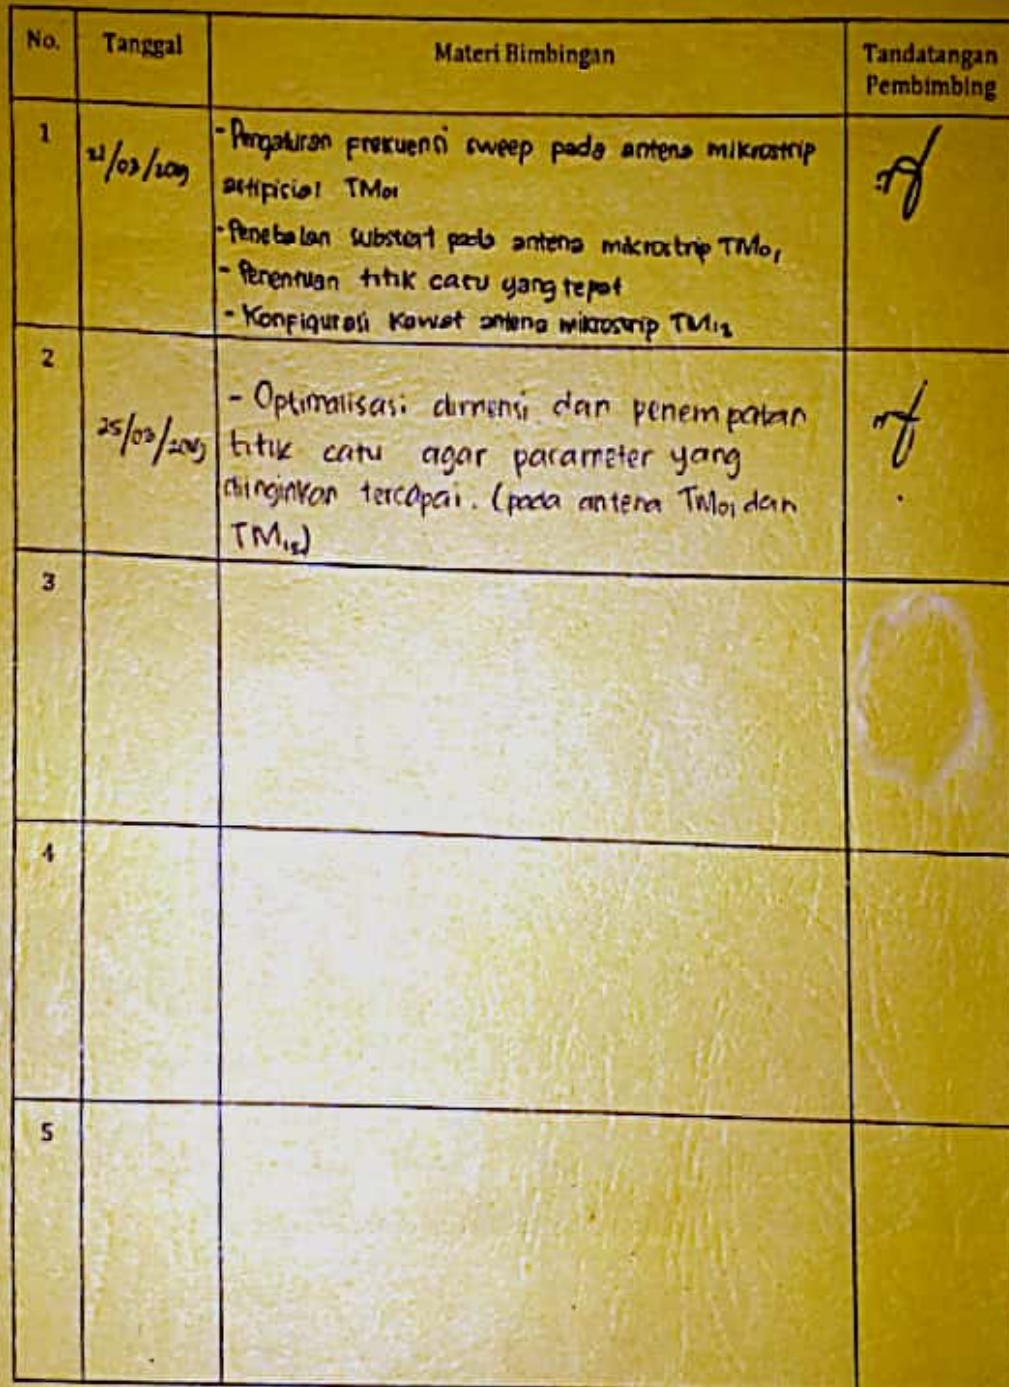 No.
Tanggal
Materi Bimbingan
Tandatangan
Pembimbing
1
- Pengaturan frekuensi sweep pada antena mikrostrip
artipicial TM01
- Penebalan substart pada antena mikrostrip TM01
- Penentuan titik catu yang tepat
- Konfigurasi Kawat antena mikrostrip TM12
2
25/03/2019
- Optimalisasi dimensi dan penempatan
titik catu agar parameter yang
diinginkan tercapai. (pada antena TM01 dan
TM12)
3
4
5